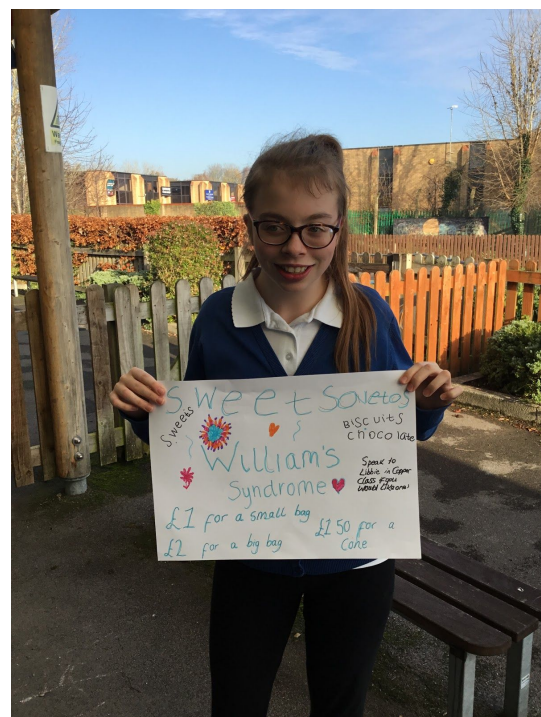 Sweet
Sweets
Biscuits
chocolate
William's
Syndrome
Speak to
in Copper
Class if you
£1 for a small bag
£2 for a big bag
£1 50 for a
Cone